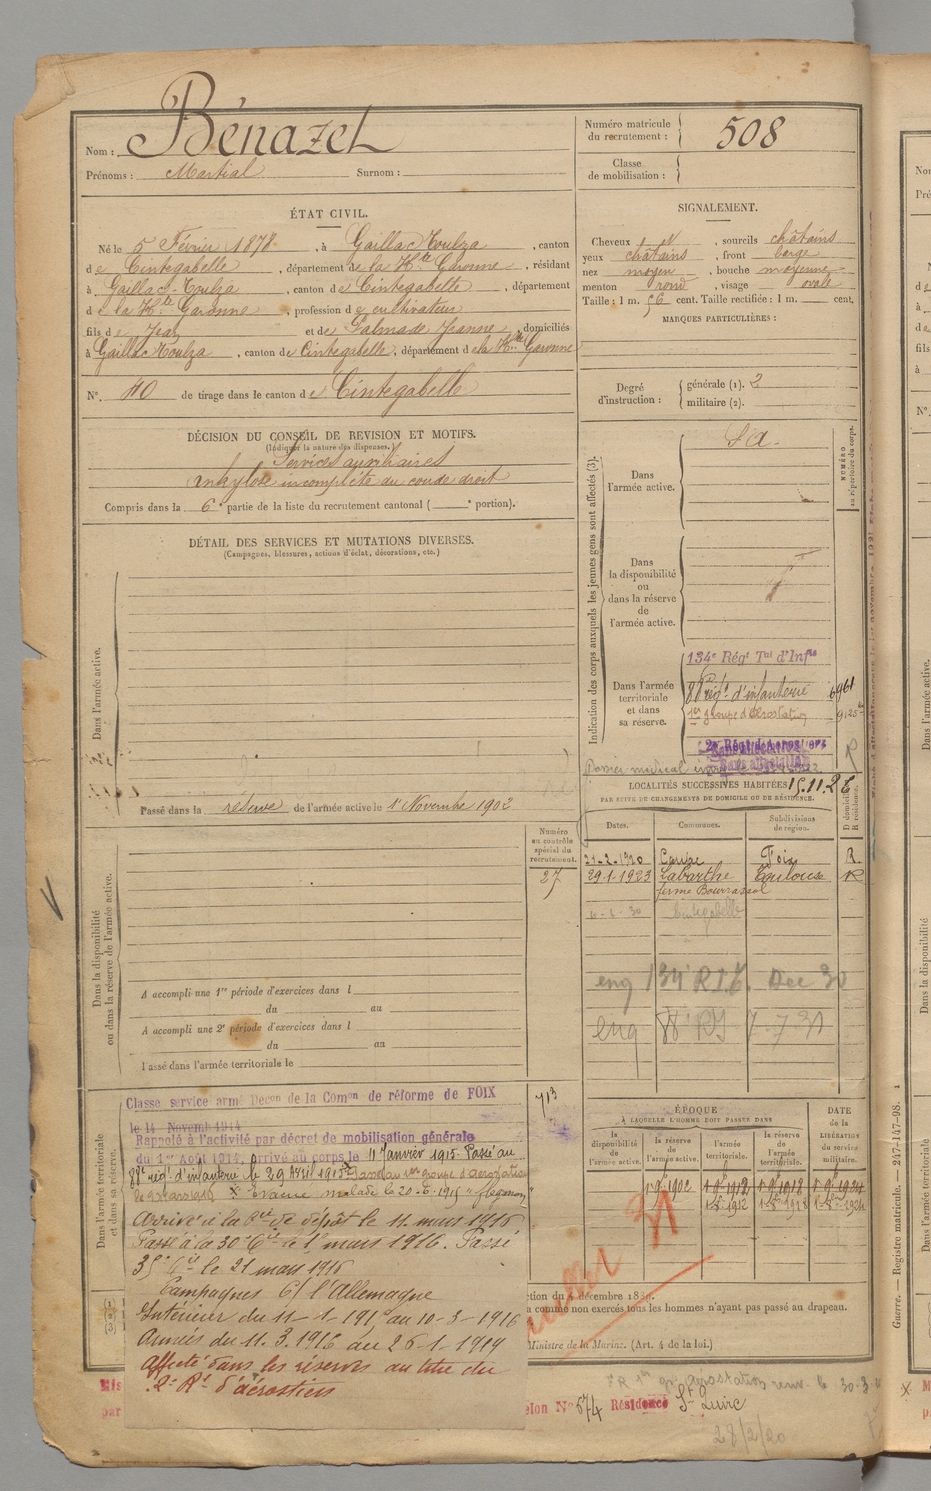 Nom : Bénazet
Prénoms : Martial Surnom :
Numéro matricule du recrutement : 508
Classe de mobilisation :
ÉTAT CIVIL.
Né le 5 Février 1878, à Gaillac-Toulza, canton
de Cintegabelle, département de la Hte Garonne, résidant
à Gaillac-Toulza, canton de Cintegabelle, département
de la Hte Garonne, profession de cultivateur
fils de Jean et de Palmade Jeanne, domiciliés
à Gaillac Toulza, canton de Cintegabelle, département de la Hte Garonne
N° 40 de tirage dans le canton de Cintegabelle
SIGNALEMENT.
Cheveux N, sourcils châtains
yeux châtains, front large
nez moyen, bouche moyenne
menton rond, visage ovale
Taille : 1 m. 56 cent. Taille rectifiée : 1 m. cent.
MARQUES PARTICULIÈRES :
Degré d'instruction : générale (1). 2
militaire (2).
DÉCISION DU CONSEIL DE REVISION ET MOTIFS.
(Indiquer la nature des dispenses.)
Services auxiliaires
Ankylose incomplète du coude droit
Compris dans la 6e partie de la liste du recrutement cantonal ( e portion).
DÉTAIL DES SERVICES ET MUTATIONS DIVERSES.
(Campagnes, blessures, actions d'éclat, décorations, etc.)
Dans l'armée active.
Passé dans la réserve de l'armée active le 1er Novembre 1902
Indication des corps auxquels les jeunes gens sont affectés (3).
NUMÉRO au répertoire du corps.
Dans l'armée active.
S A.
Dans la disponibilité ou dans la réserve de l'armée active.
Dans l'armée territoriale et dans sa réserve.
134e Régt Tal d'Infie
88e régt d'infanterie 6961
1er groupe d'aérostation
2e Régt d'Aérostiers
Sans affectation
LOCALITÉS SUCCESSIVES HABITÉES 15.11.26
PAR SUITE DE CHANGEMENTS DE DOMICILE OU DE RÉSIDENCE.
D domicile R résidence.
Dates. Communes. Subdivisions de région.
21-2-1920 Foix R
29-1-1923 Labarthe Toulouse R
ferme Bourrassol
Cintegabelle
eng 134e RIT. Dec 30
eng 88e RI
Numéro au contrôle spécial du recrutement.
27
Dans la disponibilité ou dans la réserve de l'armée active.
A accompli une 1re période d'exercices dans l
du au
A accompli une 2e période d'exercices dans l
du au
Passé dans l'armée territoriale le
Dans l'armée territoriale et dans sa réserve.
713
Classe service armé Decon de la Comon de réforme de FOIX
le 14 Novemb 1914
Rappelé à l'activité par décret de mobilisation générale
du 1er Août 1914, arrivé au corps le 11 Janvier 1915. Passé au
88e régt d'infanterie le 29 Avril 1915 X Passé au 1er groupe d'aérostation
X Evacué malade le 20-6-1915
Arrivé à la Cie de dépôt le 11 mars 1916
Passé à la 30e Cie le 1er mars 1916. Passé
35e Cie le 21 mars 1916
Campagnes C/ l'Allemagne
Intérieur du 11-1-1915 au 10-3-1916
Armées du 11.3.1916 au 26-1-1919
Affecté dans les réserves au titre du
2e Rt d'aérostiers
ÉPOQUE
À LAQUELLE L'HOMME DOIT PASSER DANS
la disponibilité de l'armée active. la réserve de l'armée active. l'armée territoriale. la réserve de l'armée territoriale.
DATE DE LA LIBÉRATION du service militaire.
1-9-1902 1-9-1912 1-9-1918 1-9-1924
1-8-1912 1-8-1918 1-8-1924
ction du 4 décembre 1889.
a comme non exercés tous les hommes n'ayant pas passé au drapeau.
Ministre de la Marine. (Art. 4 de la loi.)
elon N° 574 Résidence
28/2/20
Guerre. — Registre matricule. — 247-147-98.